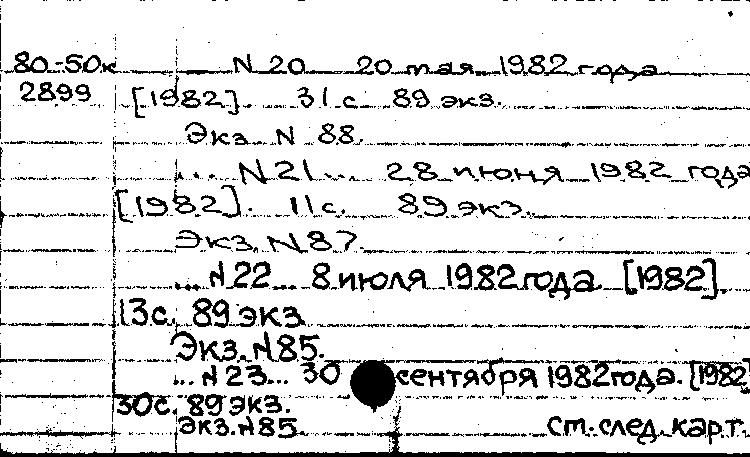 80-50к N 20 20 мая 1982 года
2899 [1982]. 31 с. 89 экз.
Экз. N 88.
... N 21 ... 28 июня 1982 года
[1982]. 11 с. 89 экз.
Экз. N 87.
... N 22 ... 8 июля 1982 года. [1982].
13 с. 89 экз.
Экз. N 85.
... N 23 ... 30 сентября 1982 года. [1982]
30 с. 89 экз.
Экз. N 85. ст. след. карт.